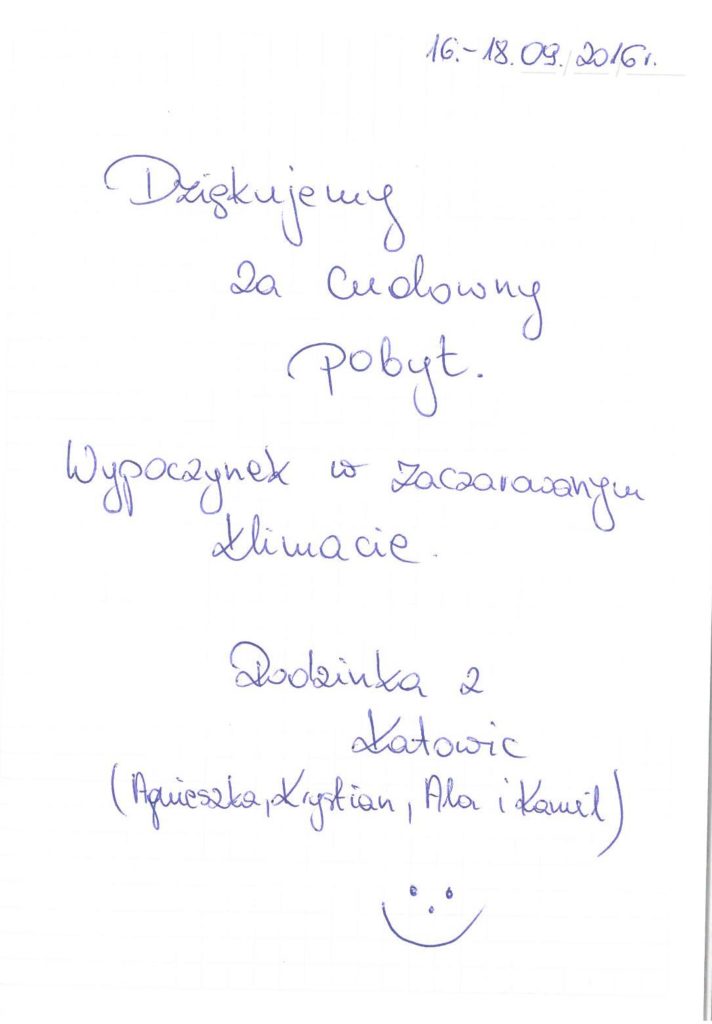 16.-18.09.2016r.
Dziękujemy
za cudowny
pobyt.
Wypoczynek w zaczarowanym
klimacie.
Rodzinka z
Katowic
(Agnieszka, Krystian, Ala i Kamil)